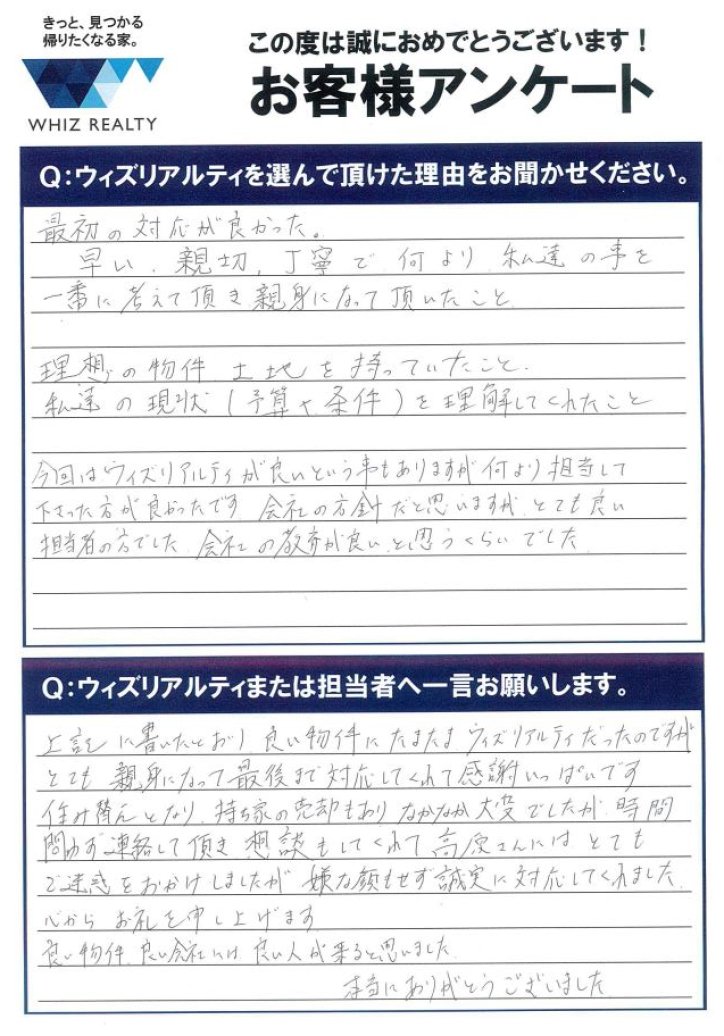 きっと、見つかる
帰りたくなる家。
WHIZ REALTY
この度は誠におめでとうございます！
お客様アンケート
Q：ウィズリアルティを選んで頂けた理由をお聞かせください。
最初の対応が良かった。
早い、親切、丁寧で何より私達の事を
一番に考えて頂き親身になって頂いたこと
理想の物件、土地を持っていたこと、
私達の現状（予算や条件）を理解してくれたこと
今回はウィズリアルティが良いという事もありますが何より担当して
下さった方が良かったです 会社の方針だと思いますが、とても良い
担当者の方でした、会社の教育が良いと思うくらいでした、
Q：ウィズリアルティまたは担当者へ一言お願いします。
上記に書いたとおり良い物件にたまたまウィズリアルティだったのですが
とても親身になって最後まで対応してくれて感謝いっぱいです
住み替えとなり、持ち家の売却もあり なかなか大変でしたが、時間
問わず連絡して頂き 想談もしてくれて高原さんにはとても
ご迷惑をおかけしましたが 嫌な顔もせず誠実に対応してくれました、
心から お礼を申し上げます
良い物件、良い会社には良い人が来ると思いました、
本当にありがとうございました